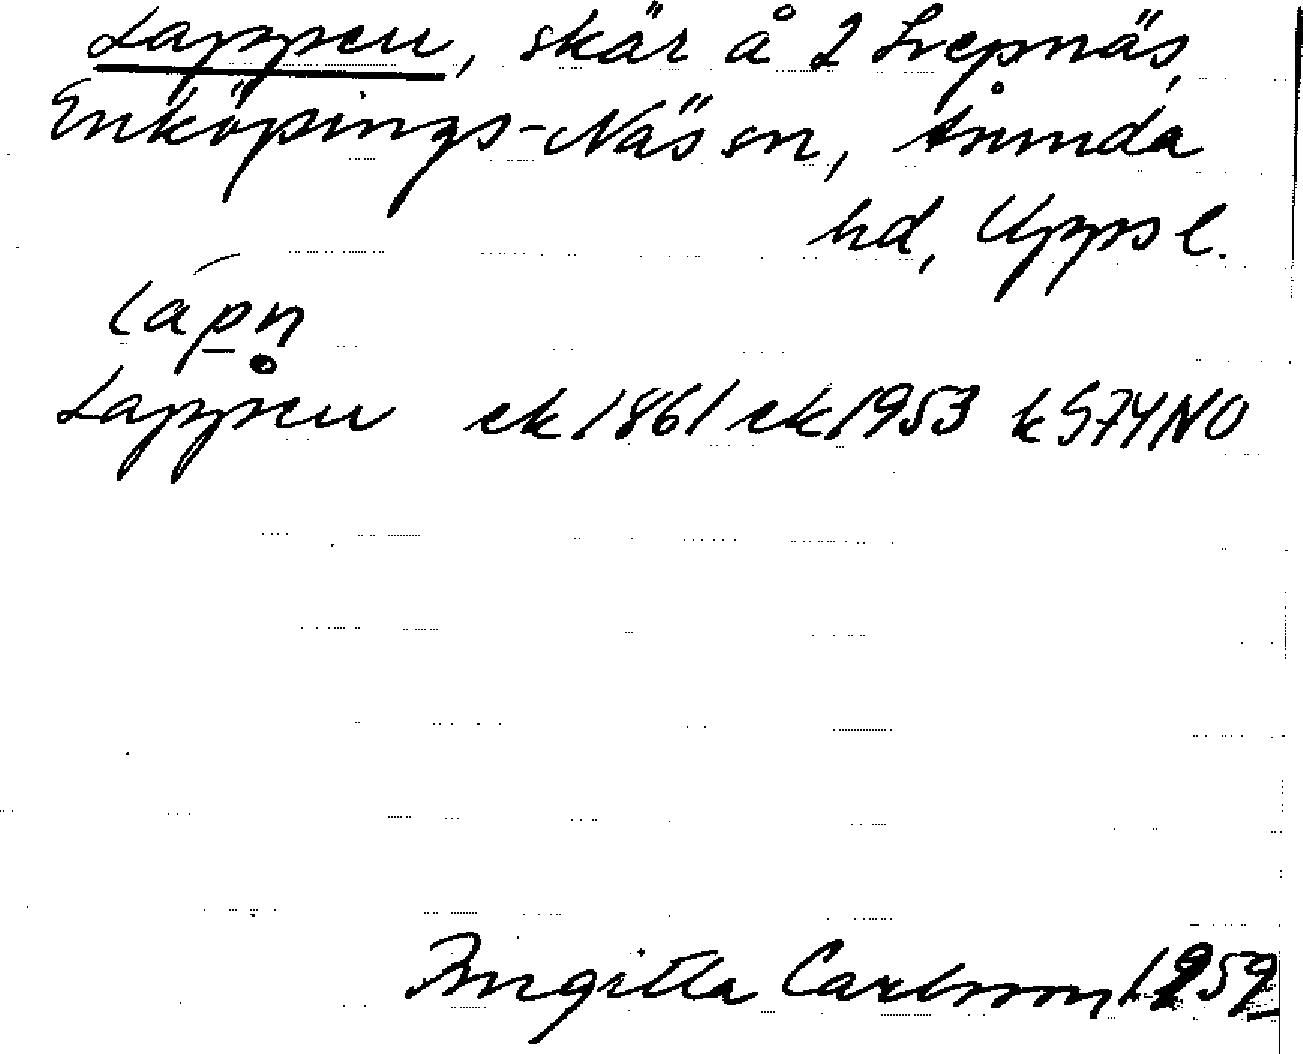 Lappen, skär å 2 Svepnäs,
Enköpings-Näs sn, Åsunda
hd, Uppsl.
lapn
Lappen ek 1861 ek 1953 k S74NO
Birgitta Carlsson 1959